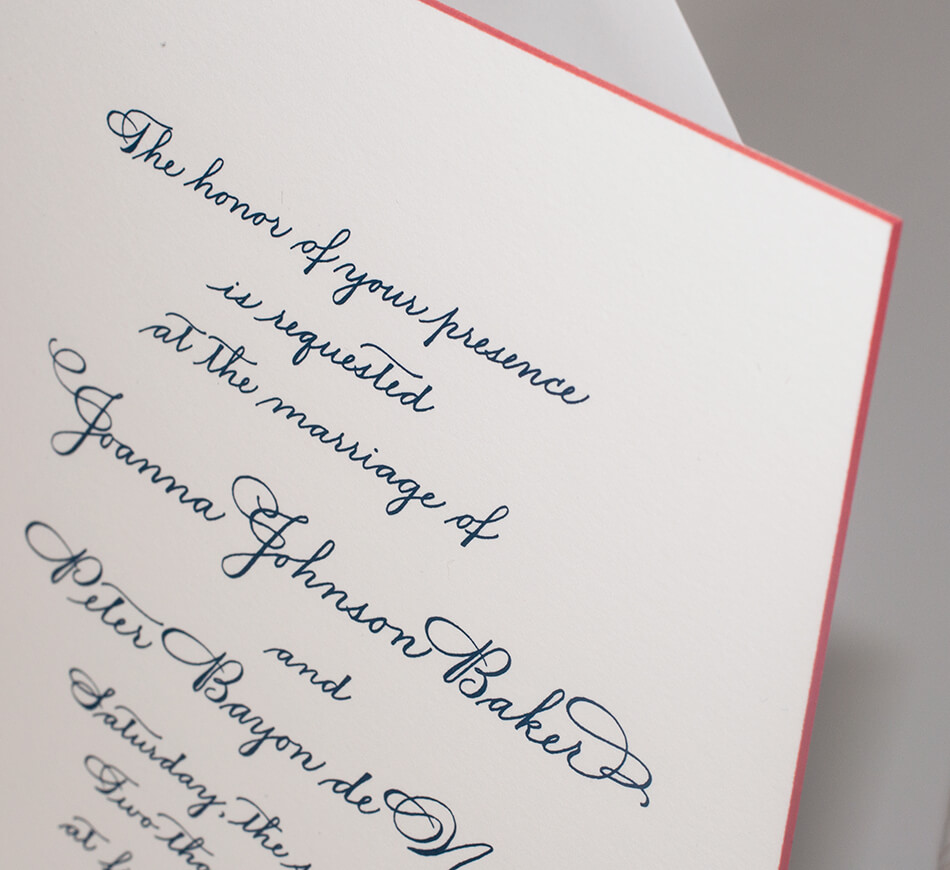 The honor of your presence
is requested
at the marriage of
Joanna Johnson Baker
and
Peter Bayon de
Saturday, the
Two
at